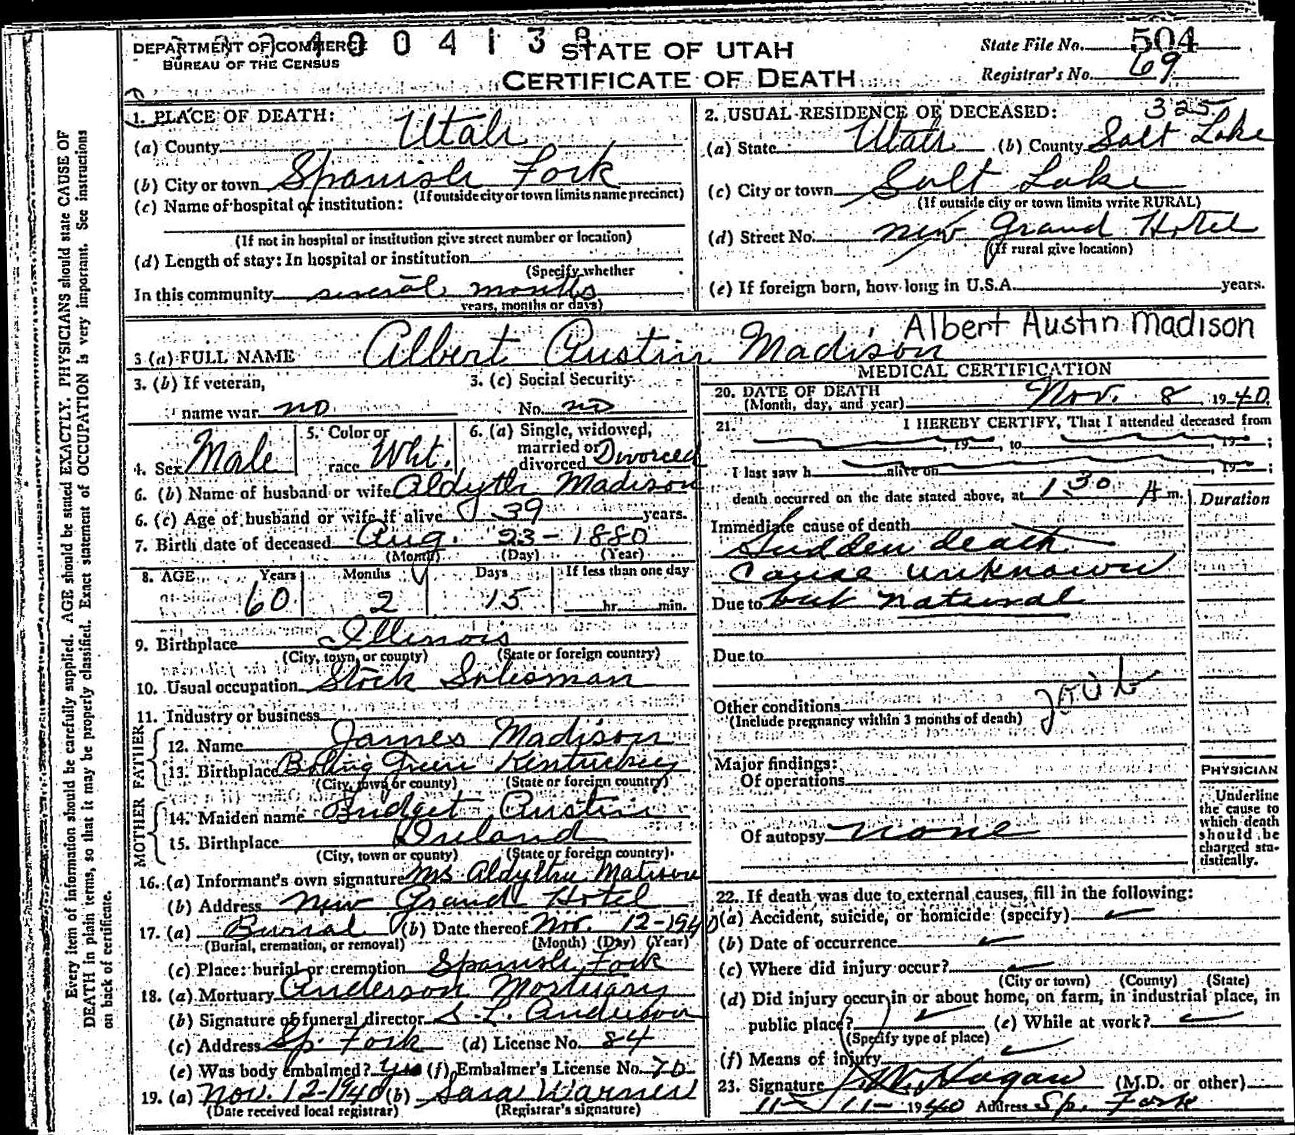 DEPARTMENT OF COMMERCE
BUREAU OF THE CENSUS
4 0 0 4 1 3 8
STATE OF UTAH
CERTIFICATE OF DEATH
State File No. 504
Registrar's No. 69
Every item of information should be carefully supplied. AGE should be stated EXACTLY. PHYSICIANS should state CAUSE OF
DEATH in plain terms, so that it may be properly classified. Exact statement of OCCUPATION is very important. See instructions
on back of certificate.
1. PLACE OF DEATH:
(a) County Utah
(b) City or town Spanish Fork
(If outside city or town limits name precinct)
(c) Name of hospital or institution:
(If not in hospital or institution give street number or location)
(d) Length of stay: In hospital or institution
(Specify whether
In this community several months
years, months or days)
2. USUAL RESIDENCE OF DECEASED: 325
(a) State Utah (b) County Salt Lake
(c) City or town Salt Lake
(If outside city or town limits write RURAL)
(d) Street No. New Grand Hotel
(If rural give location)
(e) If foreign born, how long in U.S.A. years.
3 (a) FULL NAME Albert Austin Madison Albert Austin Madison
3. (b) If veteran,
name war no
3. (c) Social Security
No. no
4. Sex Male
5. Color or
race Wht.
6. (a) Single, widowed,
married or
divorced Divorced
6. (b) Name of husband or wife Aldyth Madison
6. (c) Age of husband or wife if alive 39 years.
7. Birth date of deceased Aug. 23-1880
(Month) (Day) (Year)
8. AGE Years Months Days If less than one day
60 2 15 hr. min.
9. Birthplace Illinois
(City, town, or county) (State or foreign country)
10. Usual occupation Stock Salesman
11. Industry or business
FATHER
12. Name James Madison
13. Birthplace Boling Green Kentuckey
(City, town or county) (State or foreign country)
MOTHER
14. Maiden name Bridget Austin
15. Birthplace Ireland
(City, town or county) (State or foreign country).
16. (a) Informant's own signature Ms Aldythe Madison
(b) Address New Grand Hotel
17. (a) Burial (b) Date thereof Nov. 12-1940
(Burial, cremation, or removal) (Month) (Day) (Year)
(c) Place: burial or cremation Spanish Fork
18. (a) Mortuary Anderson Mortuary
(b) Signature of funeral director S. L. Anderson
(c) Address Sp. Fork (d) License No. 84
(e) Was body embalmed? Yes (f) Embalmer's License No. 70
19. (a) Nov. 12-1940 (b) Sara Warner
(Date received local registrar) (Registrar's signature)
MEDICAL CERTIFICATION
20. DATE OF DEATH
(Month, day, and year) Nov. 8 1940
21. I HEREBY CERTIFY, That I attended deceased from
, 19 , to , 19 ;
I last saw h alive on , 19 ;
death occurred on the date stated above, at 1 30 A m.
Duration
Immediate cause of death
Sudden death
Cause unknown
Due to but natural
Due to
Other conditions
(Include pregnancy within 3 months of death)
Major findings:
Of operations
Of autopsy none
PHYSICIAN
Underline
the cause to
which death
should be
charged sta-
tistically.
22. If death was due to external causes, fill in the following:
(a) Accident, suicide, or homicide (specify)
(b) Date of occurrence
(c) Where did injury occur?
(City or town) (County) (State)
(d) Did injury occur in or about home, on farm, in industrial place, in
public place? (e) While at work?
(Specify type of place)
(f) Means of injury
23. Signature Hagan (M.D. or other)
11-11-1940 Address Sp. Fork